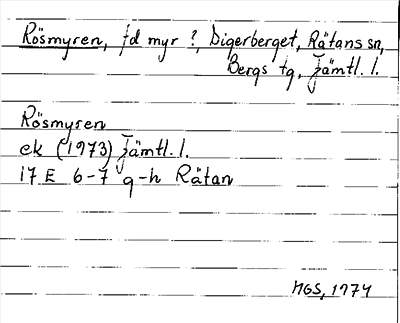 Rösmyren, fd myr?, Digerberget, Rätans sn,
Bergs tg, Jämtl. l.
Rösmyren
ek (1973) Jämtl. l.
17 E 6-7 g-h Rätan
MGS, 1974